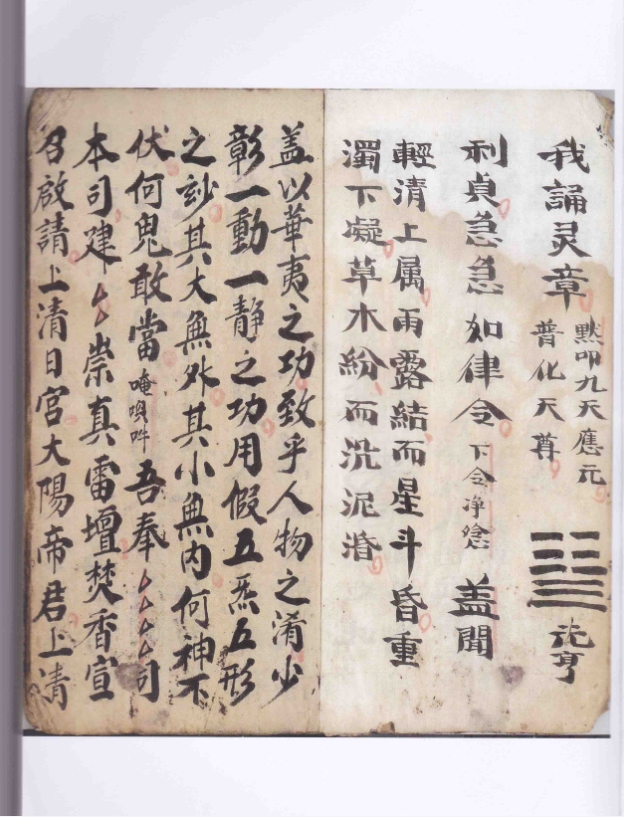 我誦灵章 默叩九天應元
普化天尊 元亨
利貞急急如律令 下令净 盖聞
輕清上属雨露結而星斗昏重
濁下凝草木紛而洗泥
盖以華夷之功致乎人物之淆少
彰一動一静之功用假五炁五形
之玅其大無外其小無内何神不
伏何鬼敢當 唵 吽 吾奉厶厶厶厶司
本司建厶厶崇真雷壇焚香宣
召啟請上清日宮太陽帝君上清